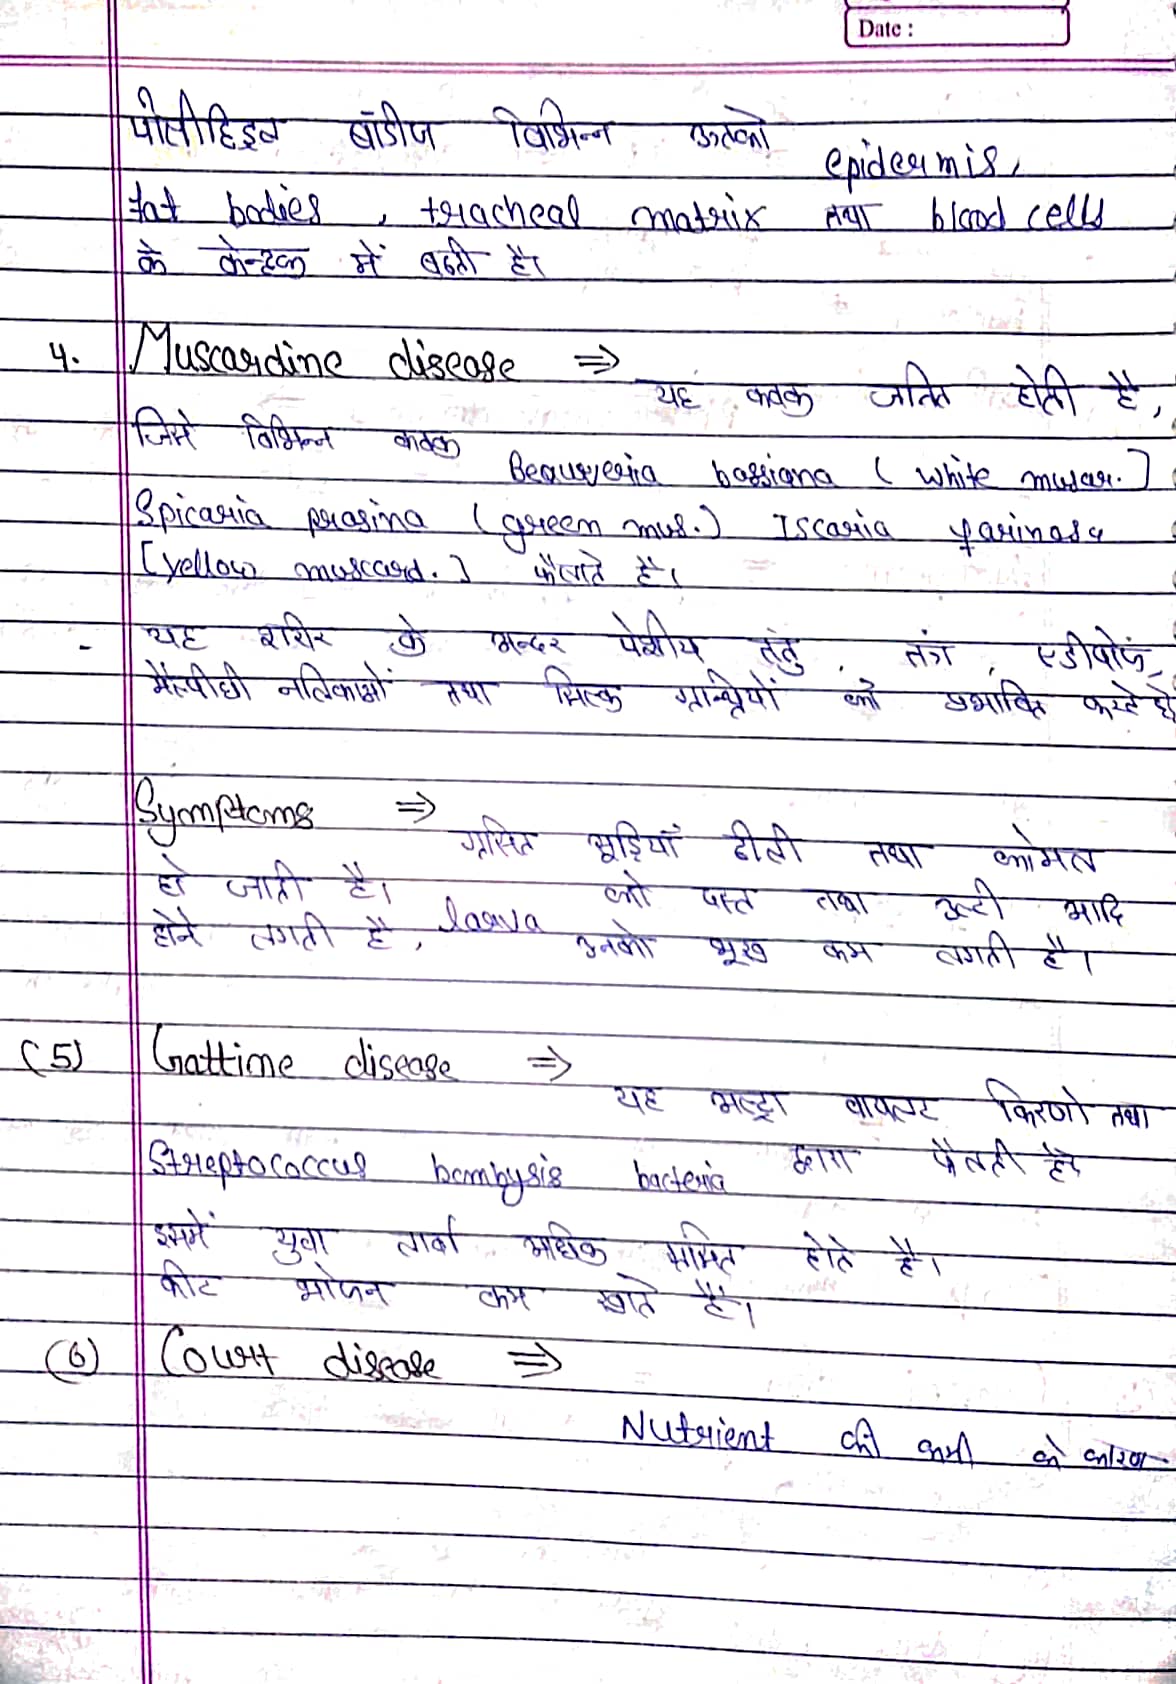 Date :
पोलीहिड्रल बॉडीज विभिन्न ऊतको epidermis,
fat bodies, tracheal matrix तथा blood cells
के केन्द्रक में बढती है।
4. Muscardine disease ⇒ यह कवक जनित होती है,
जिसे विभिन्न कवक Beauveria bassiana (white muscar.]
Spicaria prasina (green mus.) Iscaria farinosa
[yellow muscard.] फैलाते है।
- यह शरीर के अन्दर पेशीय तंतु, तंत्र,
मैल्पीघी नलिकाओं तथा सिल्क ग्रन्थियों को प्रभावित करते है
Symptoms ⇒ ग्रसित सूड़ियाँ ढीली तथा कोमल
हो जाती है। को दस्त तथा उल्टी आदि
होने लगती है, larva उनको भूख कम लगती है।
(5) Gattime disease ⇒ यह अल्ट्रा वायलट किरणो तथा
Streptococcus bombysis bacteria द्वारा फैलती है
इसमें युवा लार्वा अधिक ग्रसित होते है।
कीट भोजन कम खाते हैं।
(6) Court disease ⇒
Nutrient की कमी के कारण